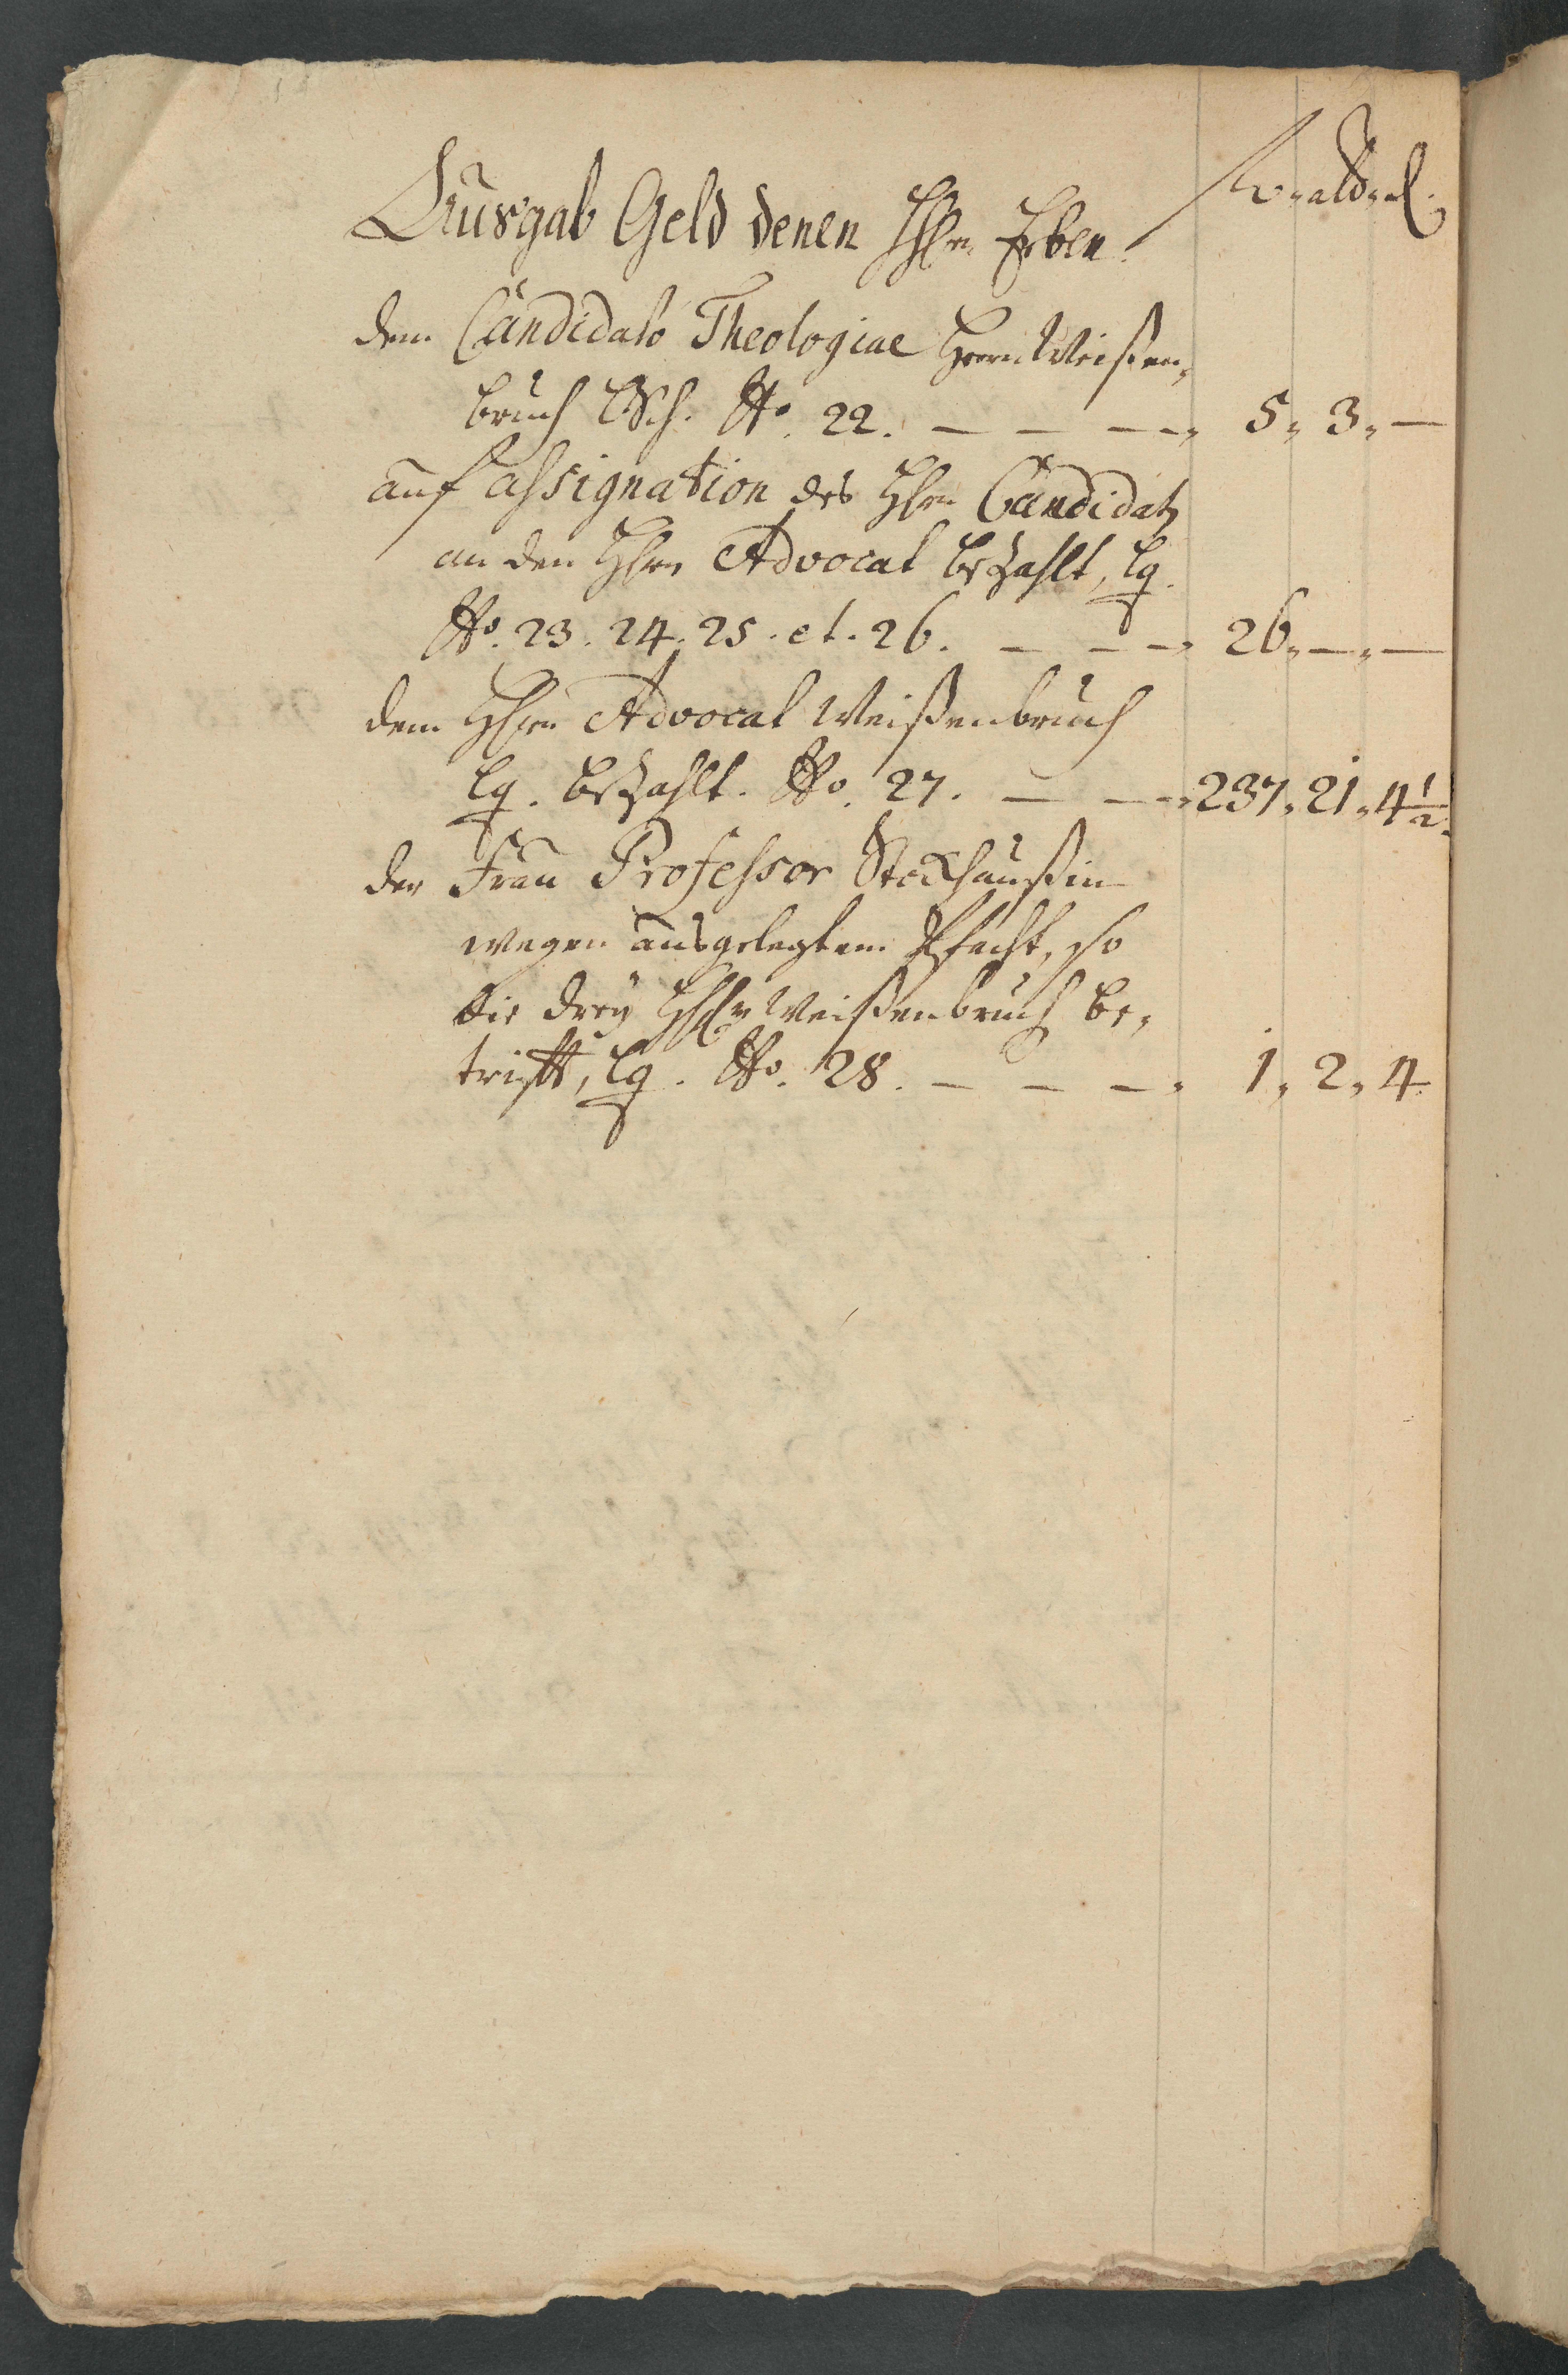 Ausgab Geld denen HEn. Erben. rt. alb. d.
dem Candidato Theologiae Herrn Weißen,
bruch lt. Sch. No. 22. — — — 5, 3, —
auf assignation des HEn Candidats
an den HEn Advocat bezahlt, lq.
No. 23. 24. 25. et. 26. — — — 26, —, —
dem HEn Advocat Weißenbruch
lq. bezahlt. No. 27. — — 237, 21, 4 1/2.
der Frau Professor Stockhaußin
wegen ausgelegtem Pfacht, so
die drey HEn Weißenbruch be,
trifft, lq. No. 28. — — — 1, 2, 4